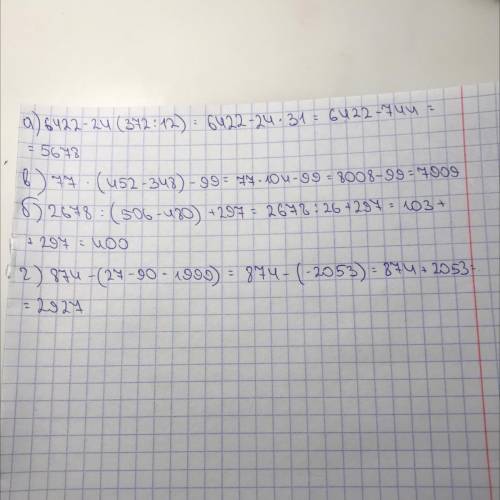 а) 6422-24(372:12) = 6422-24·31 = 6422-744 =
= 5678
в) 77 · (452-348) - 99 = 77·104-99 = 8008-99 = 7909
б) 2678 : (506-480) + 297 = 2678 : 26 + 297 = 103 +
+ 297 = 400
г) 874 - (27-90-1990) = 874 - (-2053) = 874 + 2053
= 2927